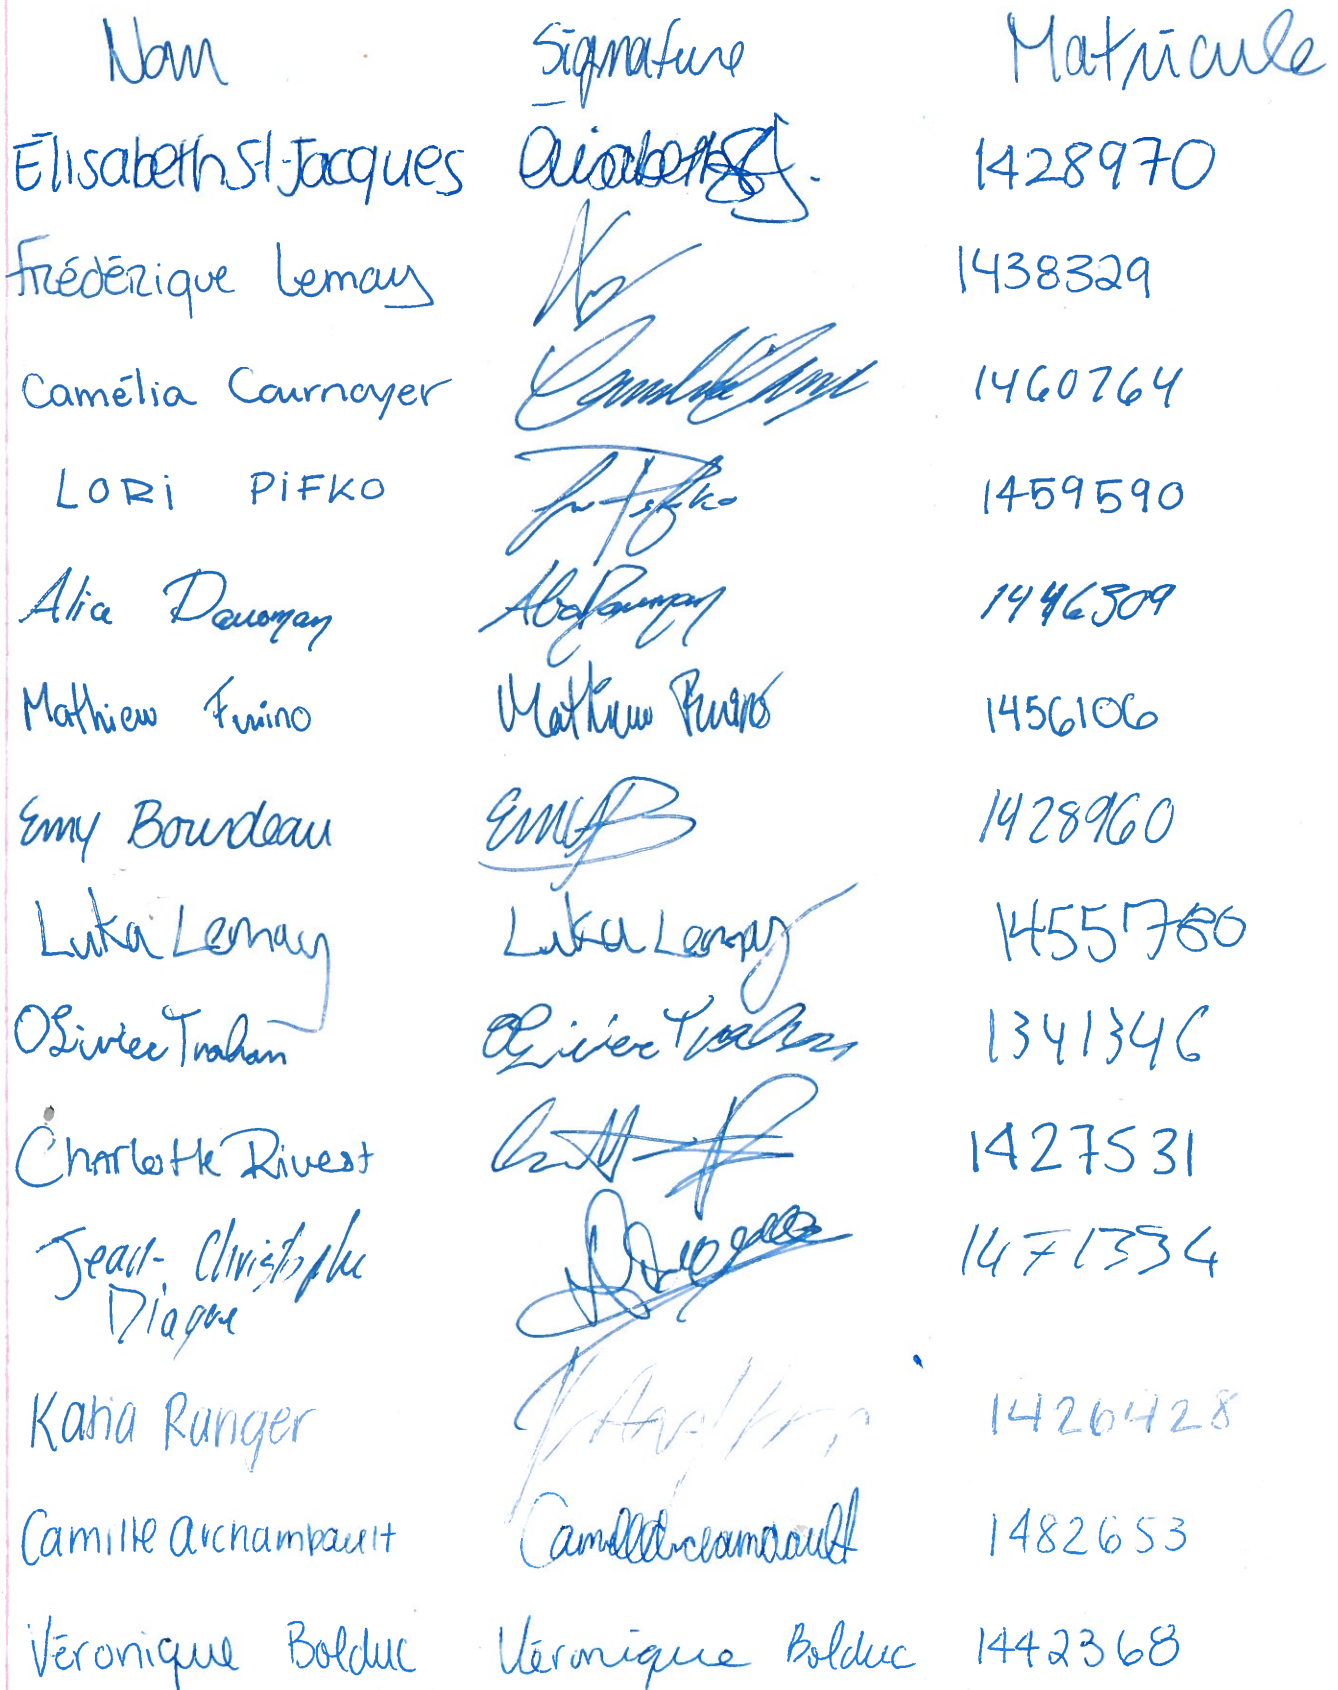 Nom Signature Matricule
Élisabeth St-Jacques Élisabeth St-J. 1428970
Frédérique Lemay 1438329
Camélia Cournoyer 1460764
LORi PiFKO Lori Pifko 1459590
Alice 1446309
Mathieu Mathieu 1456106
Emy Bourdeau Emy B 1428960
Luka Lemay Luka Lemay 1455760
OLivier Trahan OLivier Trahan 1341346
Charlotte Rivest 1427531
Jean-Christophe 1471334
Katia Ranger 1426428
Camille Archambault Camille Archambault 1482653
Véronique Bolduc Véronique Bolduc 1442368